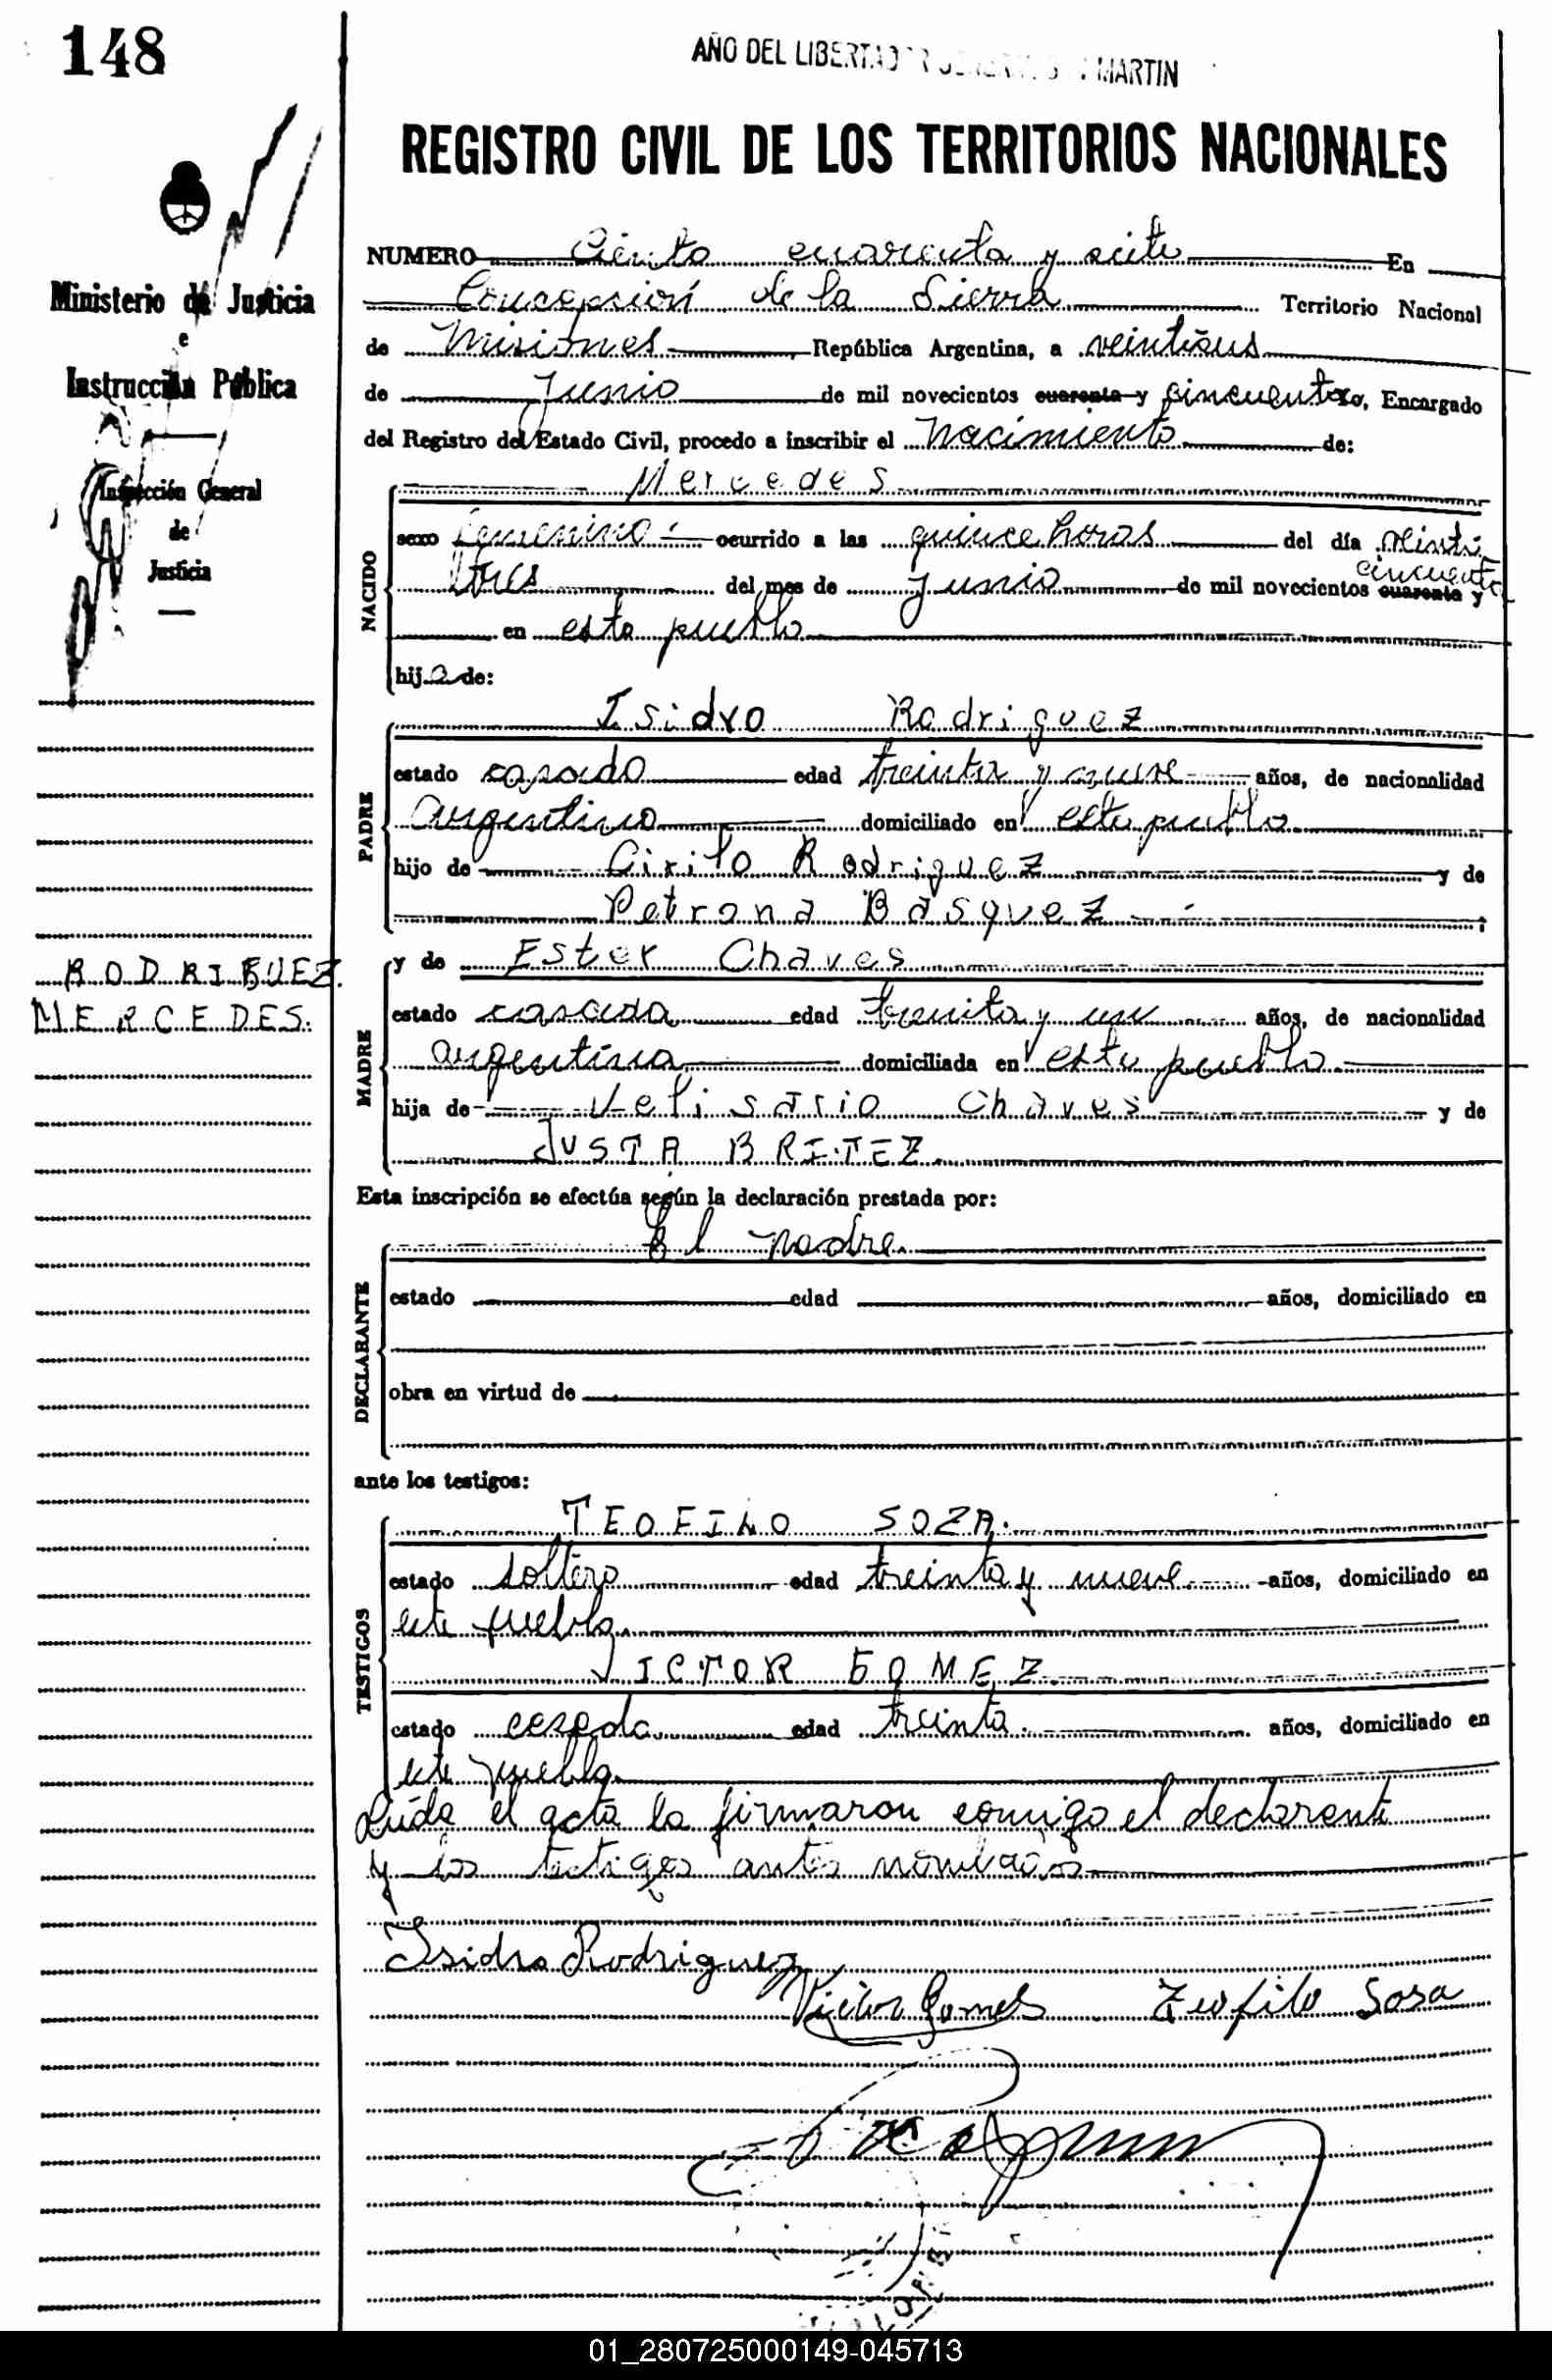 148
AÑO DEL LIBERTADOR GENERAL SAN MARTIN
REGISTRO CIVIL DE LOS TERRITORIOS NACIONALES
Ministerio de Justicia
e
Instrucción Pública
Inspección General
de
Justicia
RODRIGUEZ
MERCEDES.
NUMERO Ciento cuarenta y siete En
Concepcion de la Sierra Territorio Nacional
de Misiones República Argentina, a veintiseis
de Junio de mil novecientos cuarenta y cincuenta yo, Encargado
del Registro del Estado Civil, procedo a inscribir el Nacimiento de:
NACIDO
Mercedes
sexo femenino ocurrido a las quince horas del día veinti
tres del mes de junio de mil novecientos cuarenta y cincuenta
en este pueblo
hija de:
PADRE
Isidro Rodriguez
estado casado edad treinta y nueve años, de nacionalidad
argentino domiciliado en este pueblo
hijo de Cirilo Rodriguez y de
Petrona Basquez ;
MADRE
y de Ester Chaves
estado casada edad treinta y un años, de nacionalidad
argentina domiciliada en este pueblo
hija de Velisario Chaves y de
JUSTA BRITEZ.
Esta inscripción se efectúa según la declaración prestada por:
DECLARANTE
El padre.
estado edad años, domiciliado en
obra en virtud de
ante los testigos:
TESTIGOS
TEOFILO SOZA.
estado soltero edad treinta y nueve años, domiciliado en
este pueblo.
VICTOR GOMEZ.
estado casado edad treinta. años, domiciliado en
este pueblo.
Leida el acta la firmaron conmigo el declarante
y los testigos antes nombrados
Isidro Rodriguez
Victor Gomes Teofilo Sosa
01_280725000149-045713